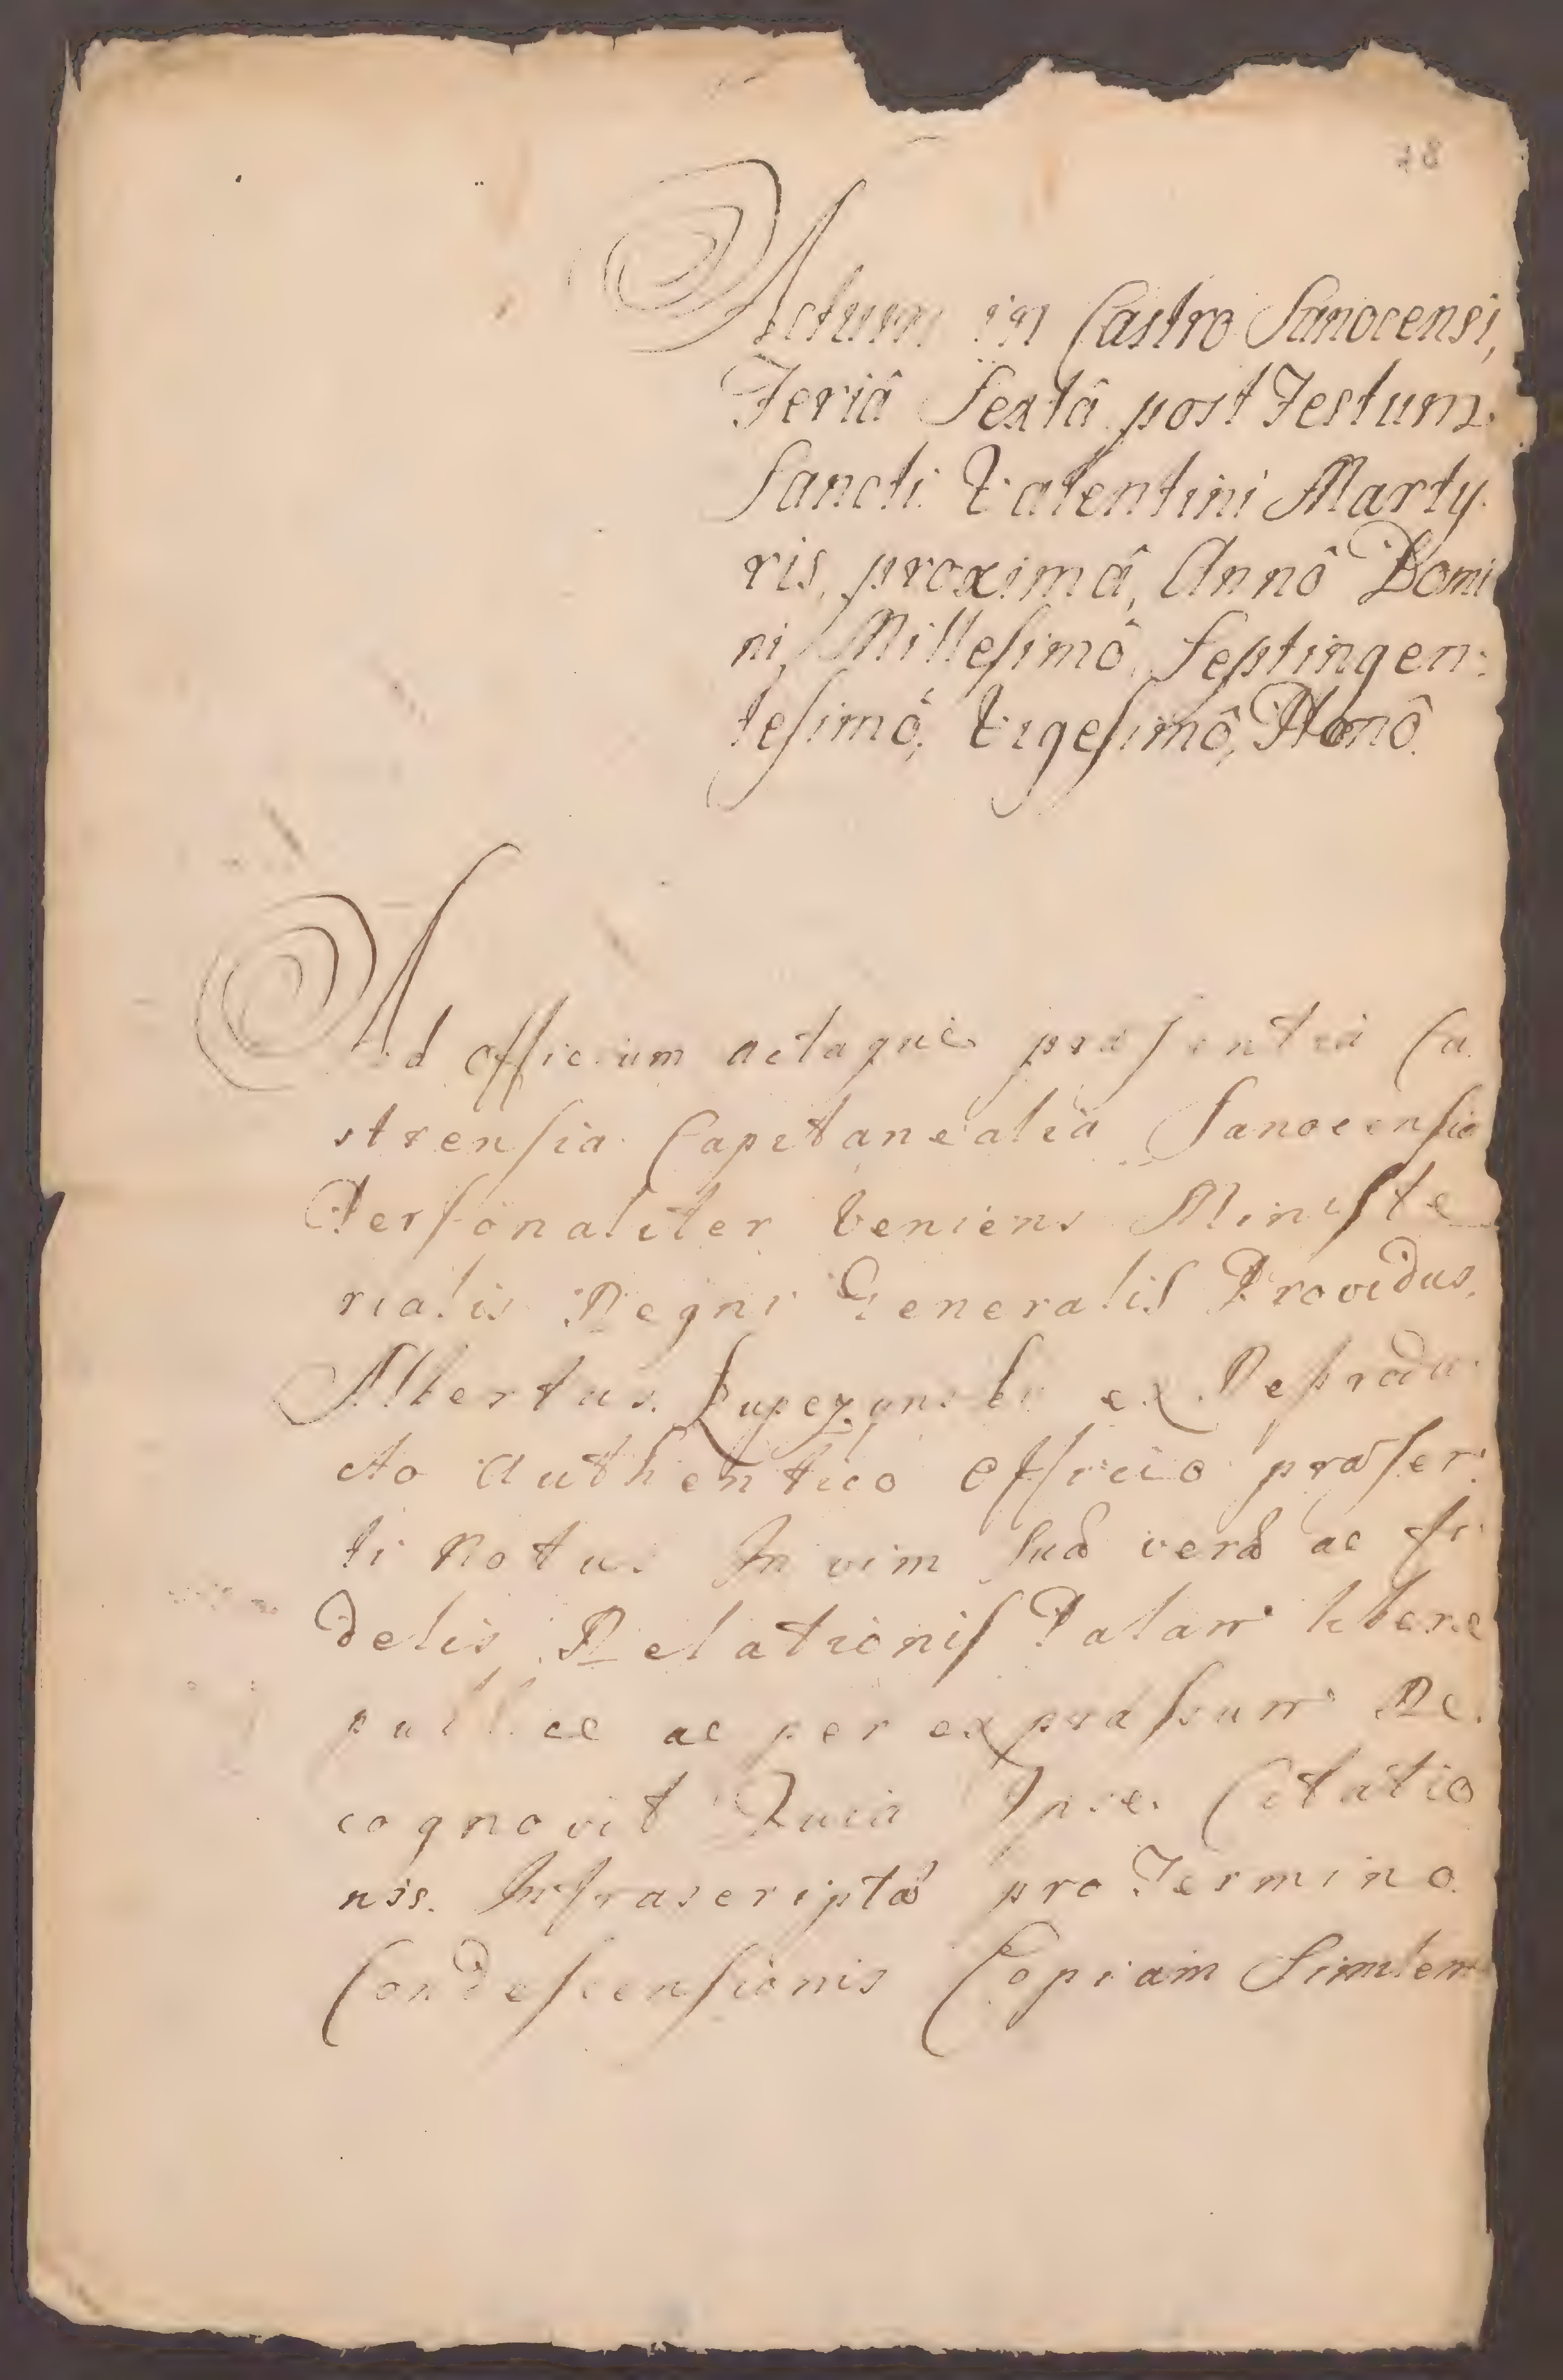 48
Actum in Castro Sanocensi,
Feriâ Sextâ post Festum
Sancti Valentini Marty
ris, proximâ, Annô Domi
ni, Millesimô Septingen:
tesimô, Vigesimô, Nonô.
Ad officium actaque præsentia Ca
strensia Capitanealia Sanocensia
Personaliter veniens Ministe
rialis Regni Generalis Providus
Albertus ex Reprodu
cto authentico officio præsen
ti notus In vim suæ veræ ac fi
delis Relationis Palam libere
publice ac per expræssum Re
cognovit Quia Ipse Citatio
nis Infrascriptæ pro Termino
Condescensionis Copiam Similem